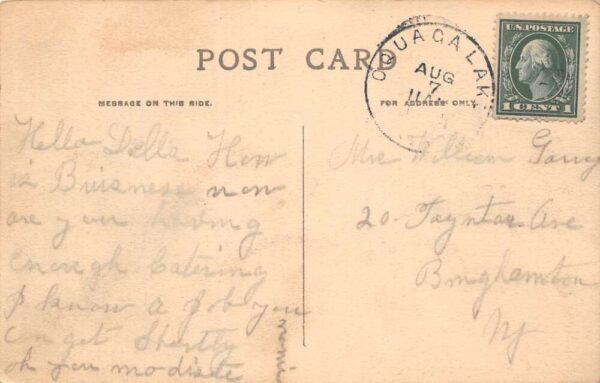 POST CARD
OQUAGA LAKE
AUG
7
U.S. POSTAGE
1 CENT 1
MESSAGE ON THIS SIDE.
FOR ADDRESS ONLY.
Hello Della How
is Buisness now
are you having
enough Catering
I know a job you
can get Shortly
oh you modiste
Mrs William
20 Ave
Binghamton
NY